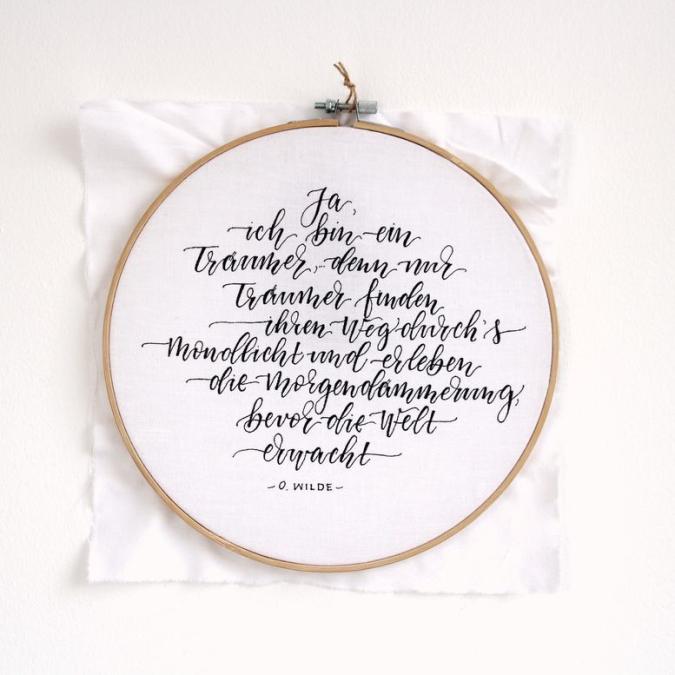 Ja,
ich bin ein
Träumer, denn nur
Träumer finden
ihren Weg durch's
Mondlicht und erleben
die Morgendämmerung,
bevor die Welt
erwacht
- O. WILDE -